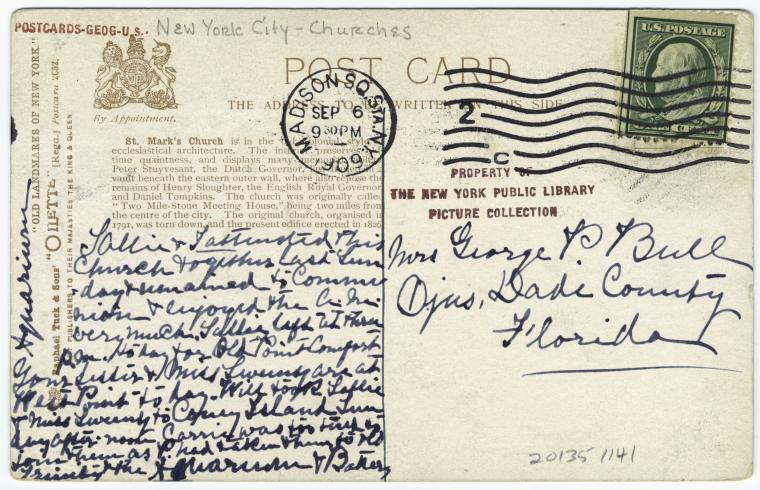 POSTCARDS-GEOG-U.S.. New York City - Churches
"OLD LANDMARKS OF NEW YORK."
Raphael Tuck & Sons' "OILETTE" [Regd.] Postcard 2632.
PUBLISHERS TO THEIR MAJESTIES THE KING & QUEEN
By Appointment.
POST CARD
THE ADDRESS TO BE WRITTEN ON THIS SIDE
MADISON SQ. STA. N.Y.
SEP 6
9 30 PM
1909
2
C
U.S. POSTAGE
St. Mark's Church is in the
ecclesiastical architecture. The
time quaintness, and displays many
Peter Stuyvesant, the Dutch Governor,
vault beneath the eastern outer wall, where also repose the
remains of Henry Sloughter, the English Royal Governor
and Daniel Tompkins. The church was originally called
"Two Mile-Stone Meeting House," being two miles from
the centre of the city. The original church, organised in
1791, was torn down, and the present edifice erected in 1826
PROPERTY OF
THE NEW YORK PUBLIC LIBRARY
PICTURE COLLECTION
Sallie & I attended this
Church together last Sun
day & remained to Commu
nion & enjoyed the
very much. Sallie left at three
P.M. today for Old Point Comfort
Your Sister & Miss Sweeny are at
West Point to day. Will took Sallie
& Miss Sweeny to Coney Island Sun
day after noon Carrie was too tired to
join them as I had taken them to old
Trinity & the Aquarium & Battery
Aquarium
Mrs George P Bull
Ojus, Dade County
Florida
20135 1141